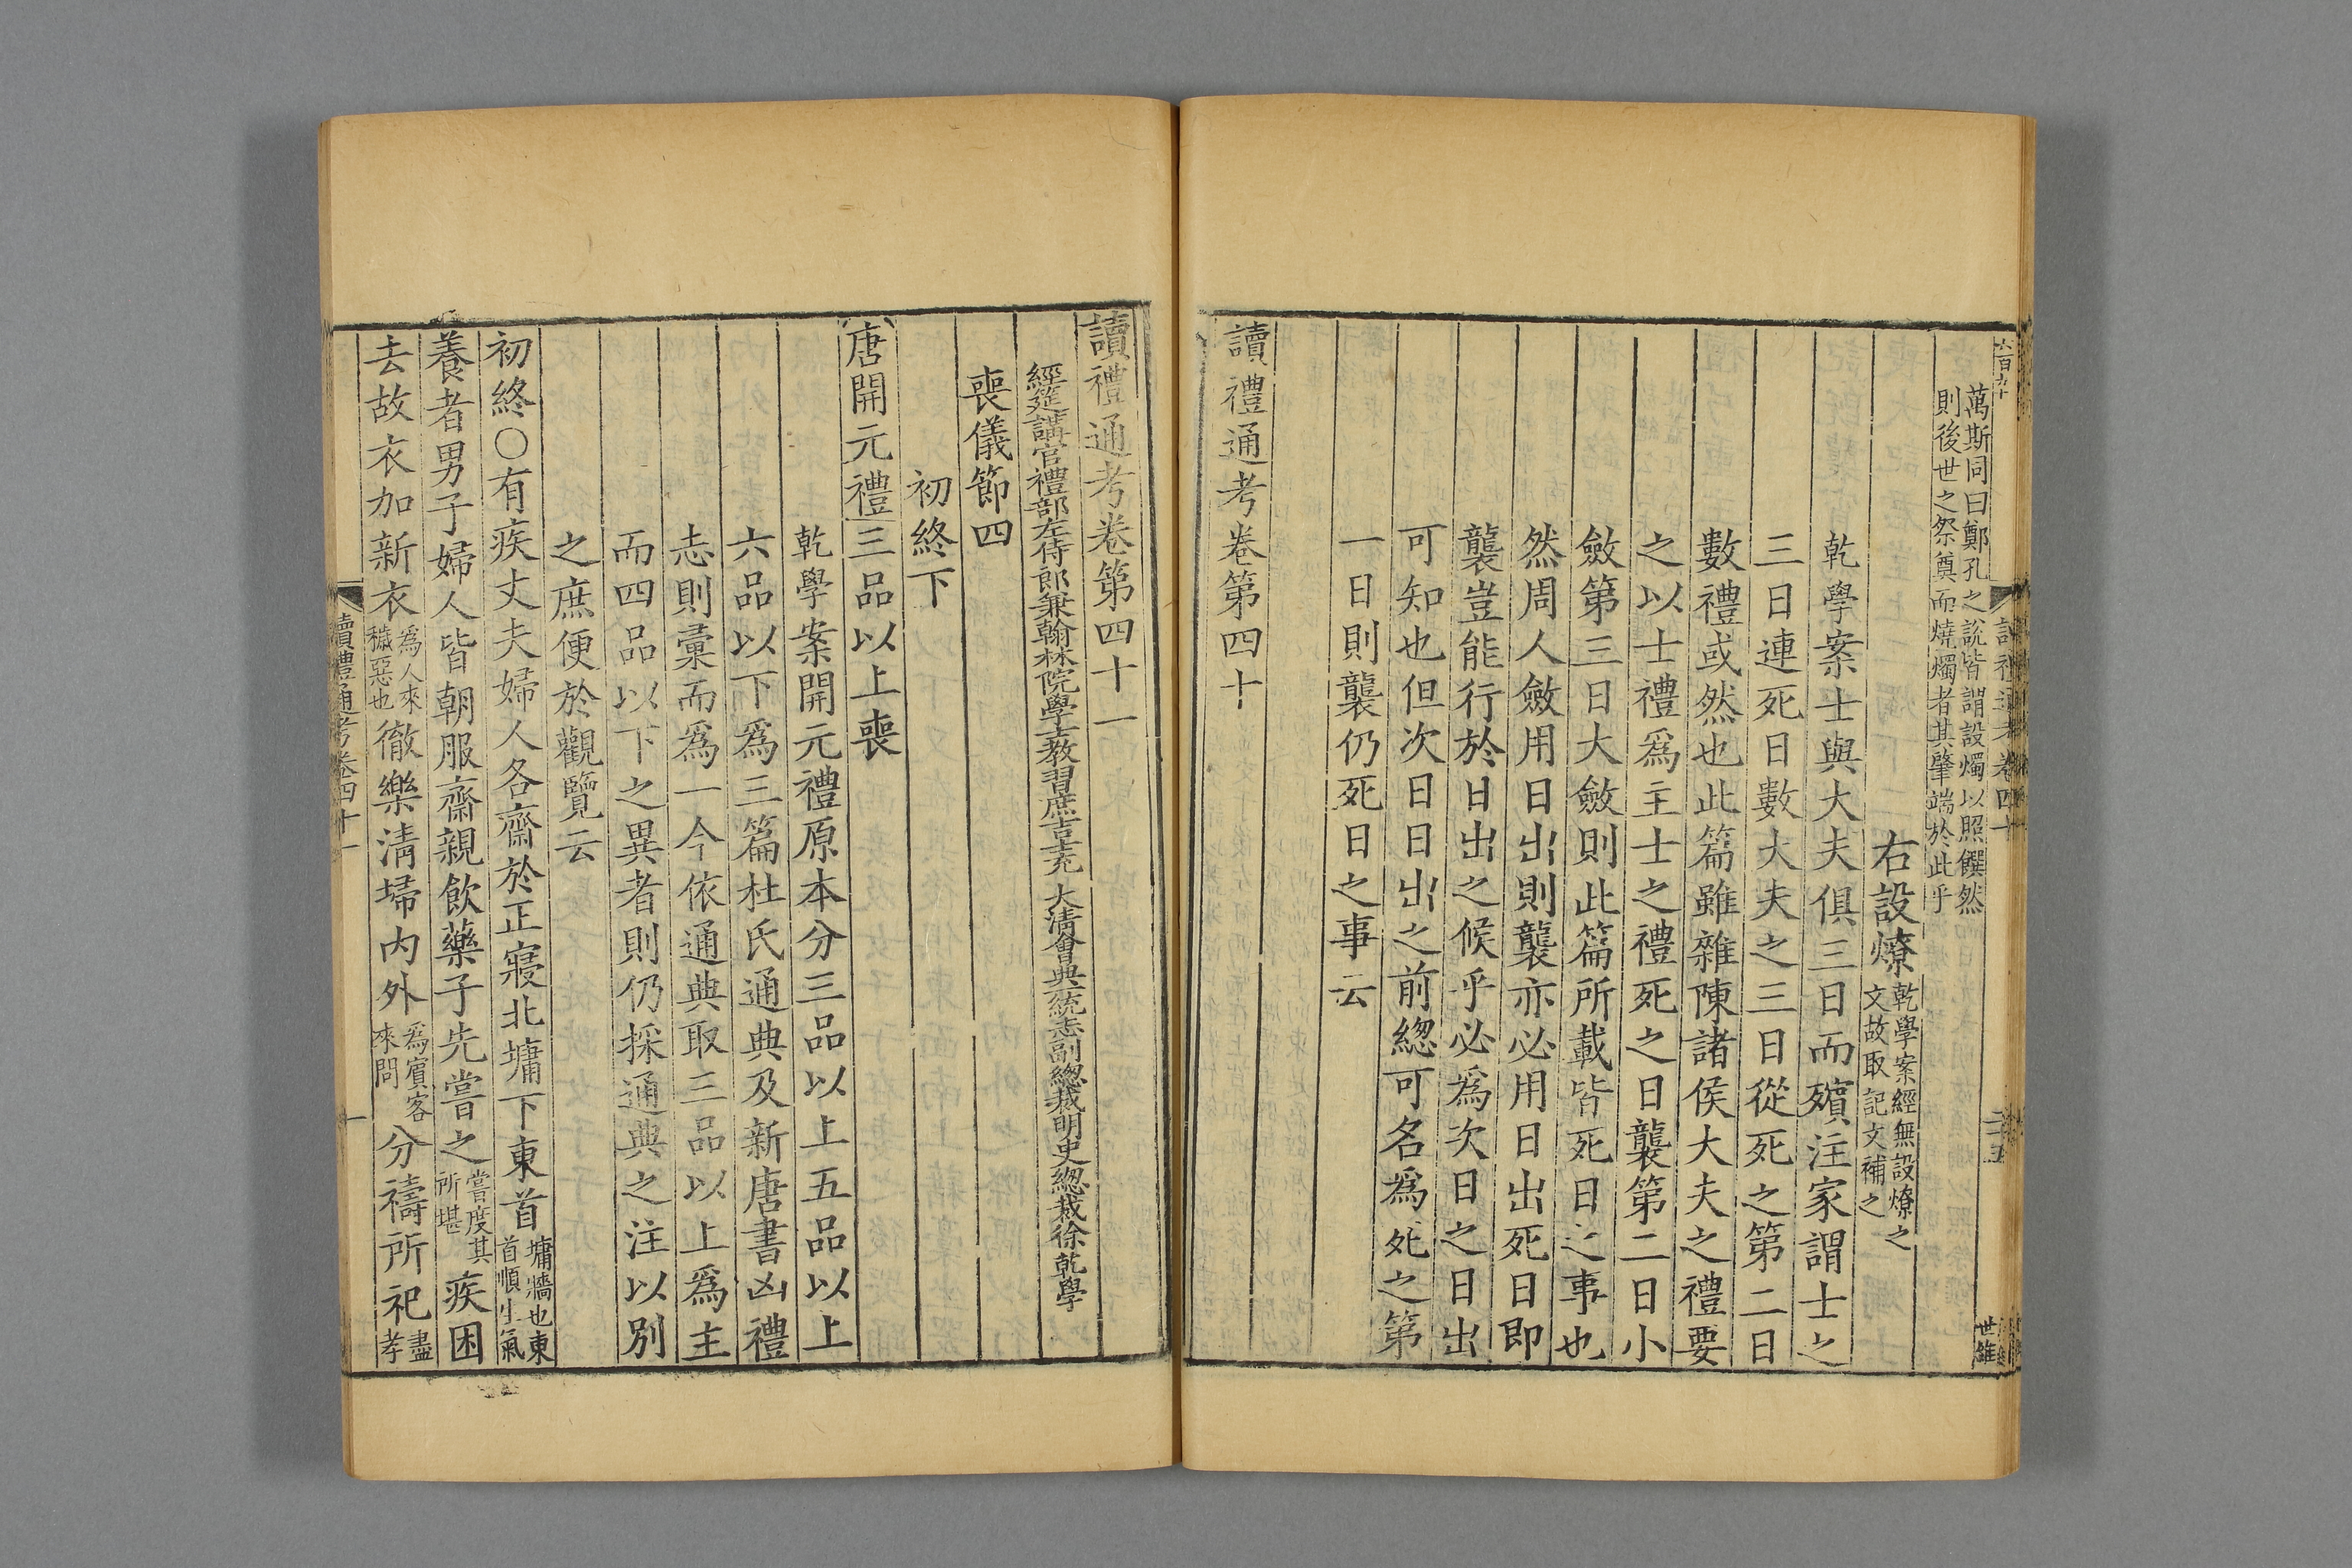 萬斯同曰鄭孔之說皆謂設燭以照饌然
則後世之祭奠而燒燭者其肇端於此乎
右設燎乾學案經無設燎之文故取記文補之
乾學案士與大夫俱三日而殯注家謂士之
三日連死日數大夫之三日從死之第二日
數禮或然也此篇雖雜陳諸侯大夫之禮要
之以士禮爲主士之禮死之日襲第二日小
斂第三日大斂則此篇所載皆死日之事也
然周人斂用日出則襲亦必用日出死日即
襲豈能行於日出之候乎必爲次日之日出
可知也但次日日出之前總可名爲死之第
一日則襲仍死日之事云
讀禮通考卷第四十
世雒
讀禮通考卷第四十一
經筵講官禮部左侍郎兼翰林院學士教習庶吉士充 大清會典一統志副總裁明史總裁徐乾學
喪儀節四
初終下
唐開元禮三品以上喪
乾學案開元禮原本分三品以上五品以上
六品以下爲三篇杜氏通典及新唐書凶禮
志則彙而爲一今依通典取三品以上爲主
而四品以下之異者則仍採通典之注以別
之庶便於觀覽云
初終○有疾丈夫婦人各齋於正寢北墉下東首墉牆也東首順生氣
養者男子婦人皆朝服齋親飲藥子先嘗之嘗度其所堪疾困
去故衣加新衣爲人來穢惡也徹樂清埽內外爲賓客來問分禱所祀盡孝
讀禮通考卷四十一
一